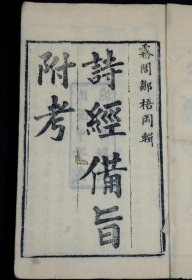 霧閣鄒梧岡輯
詩經備旨
附考